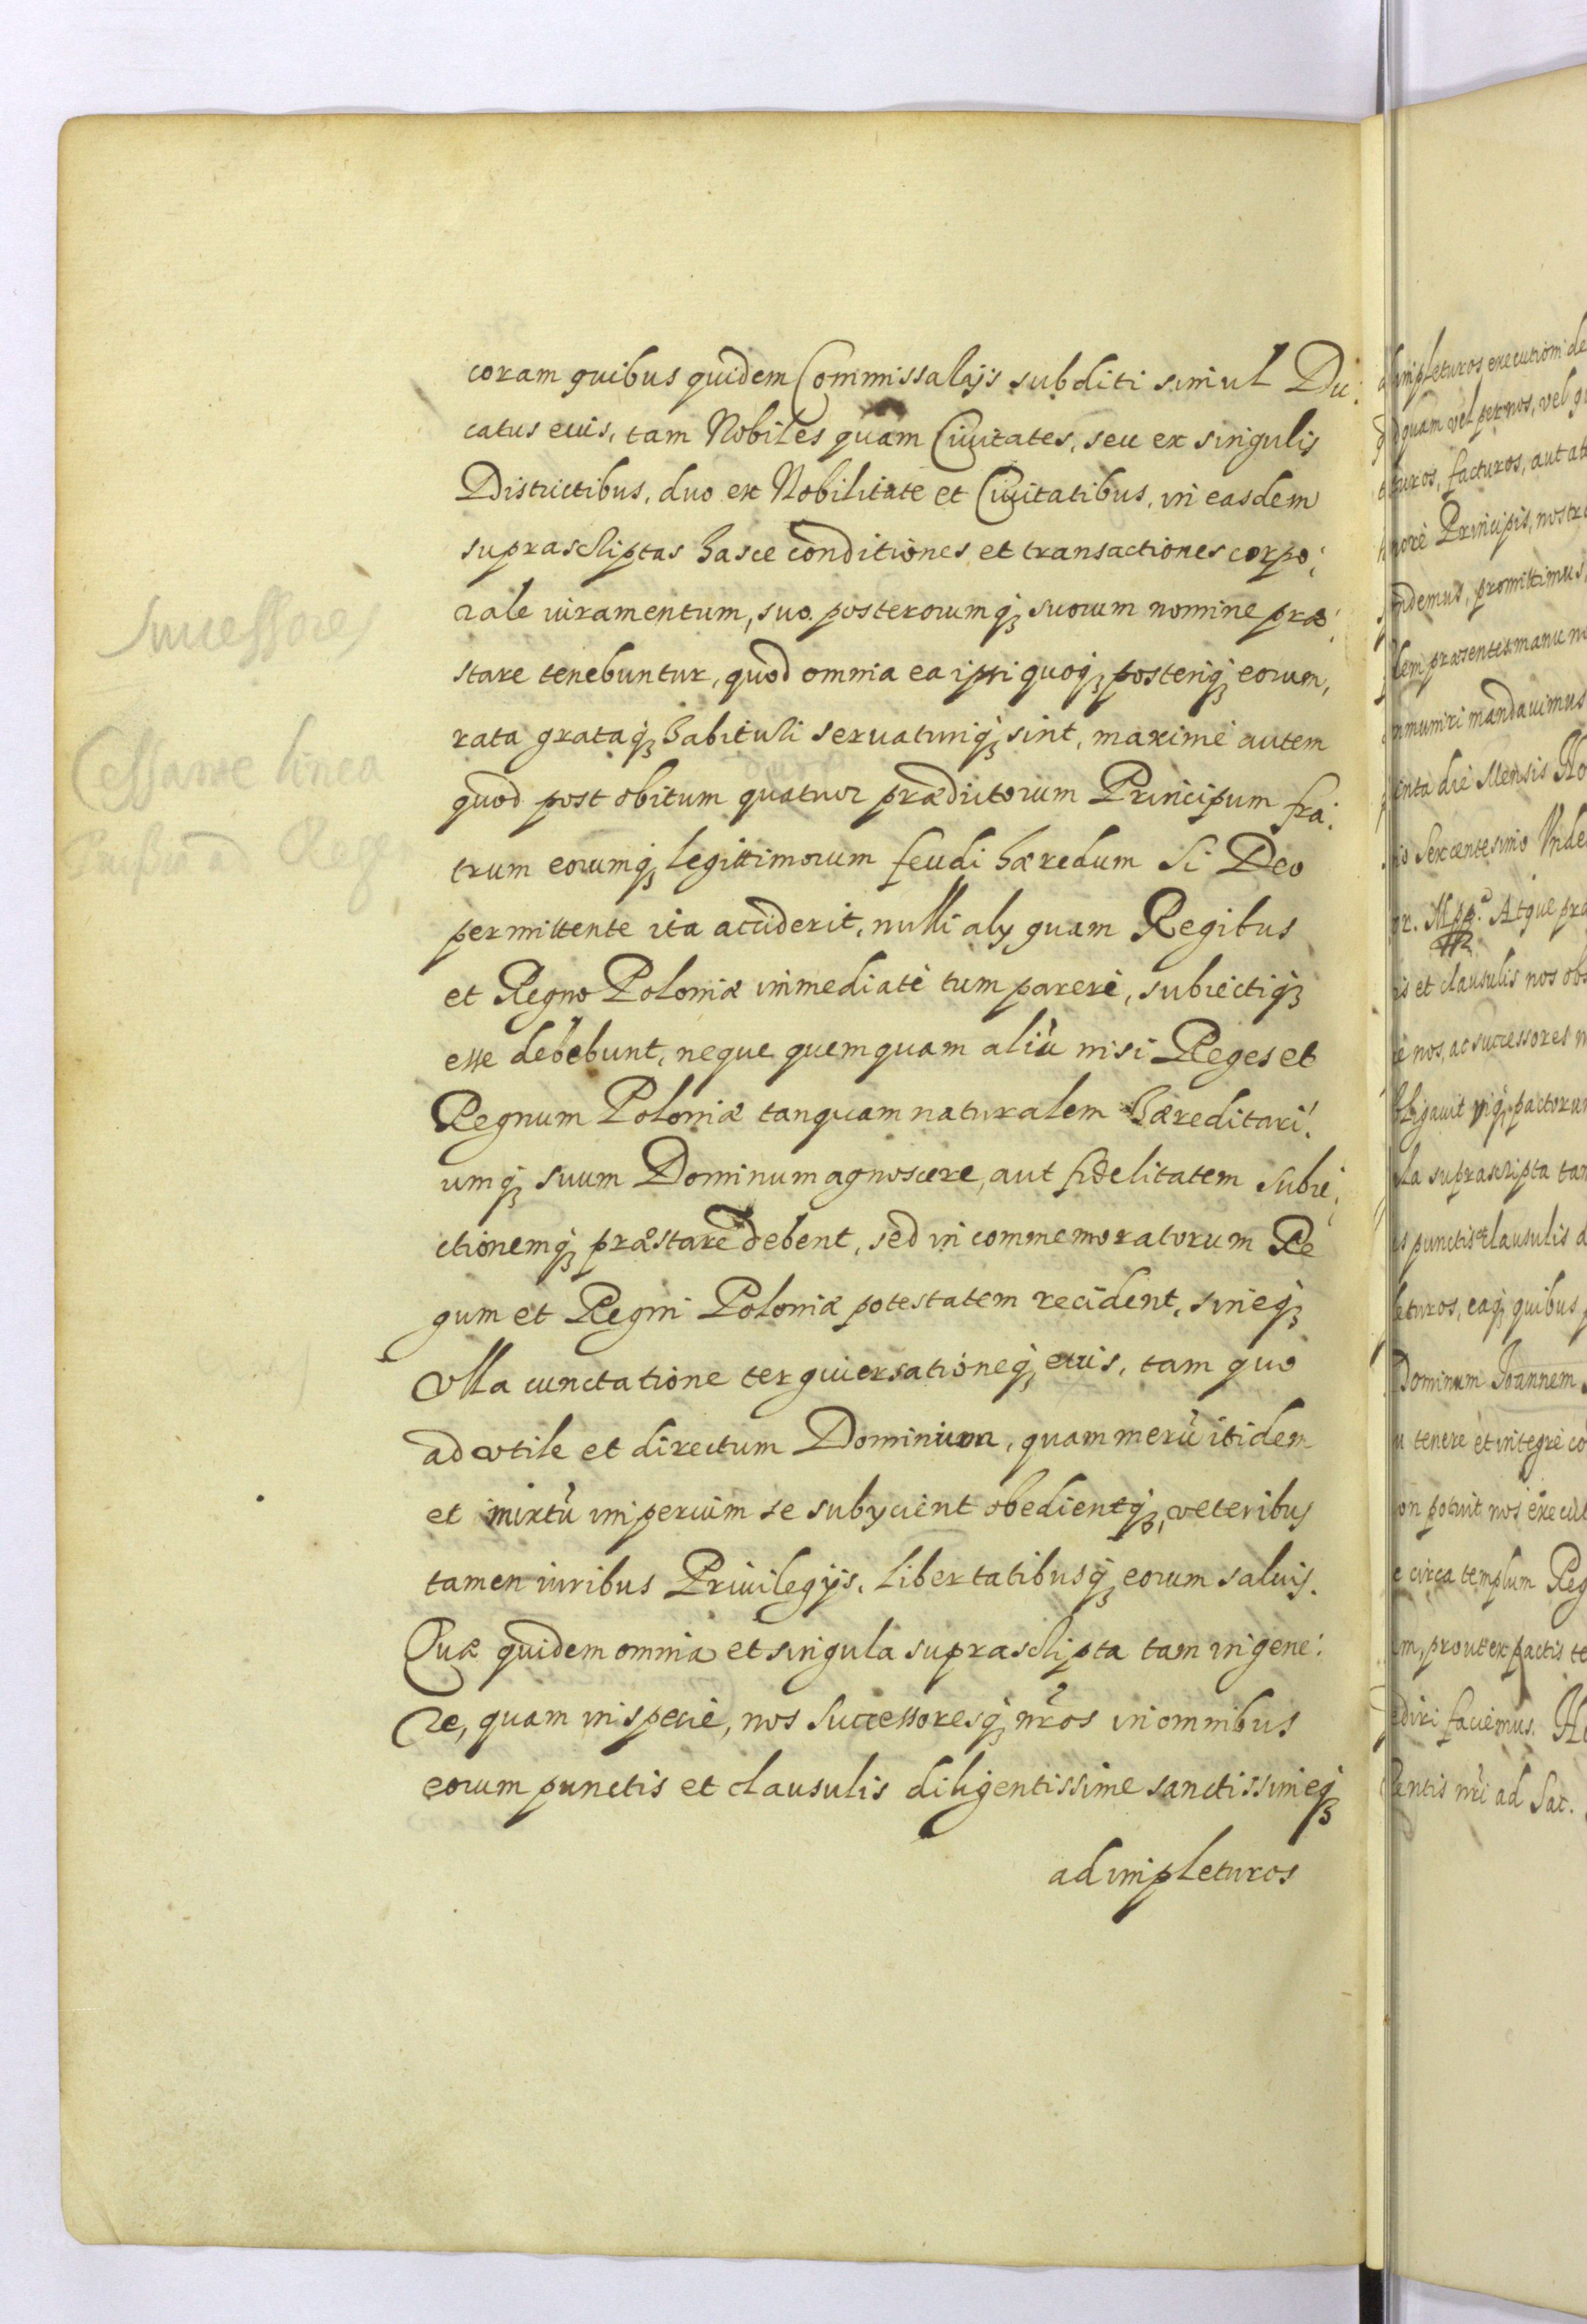 coram quibus quidem Commissarijs subditi simul Du:
catus euis, tam Nobiles quam Ciuitates, seu ex singulis
Districtibus, duo ex Nobilitate et Ciuitatibus, in easdem
suprascriptas hasce conditiones et transactiones corpo:
rale iuramentum, suo posterorumq₃ suorum nomine præ:
stare tenebuntur, quod omnia ea ipsi quoq₃ posteriq₃ eorum,
rata grataq₃ habituri seruaturiq₃ sint, maximè autem
quod post obitum quatuor prædictorum Principum fra:
trum eorumq₃ legittimorum feudi hæredum si Deo
permittente ita acciderit, nulli aly quam Regibus
et Regno Poloniæ immediatè tum parere, subiectiq₃
esse debebunt, neque quemquam aliũ nisi Reges et
Regnum Poloniæ tanquam naturalem hæreditari:
umq₃ suum Dominum agnoscere, aut fidelitatem subie:
ctionemq₃ præstare debent, sed in commemoratorum Re
gum et Regni Poloniæ potestatem recident, sineq₃
vlla cunctatione terguiersationeq₃ euis, tam quo
ad vtile et directum Dominium, quam merũ itidem
et mixtũ imperium se subycient obedientq₃, veteribus
tamen iuribus Priuilegijs, libertatibusq₃ eorum saluis.
Quæ quidem omnia et singula suprascripta tam in gene:
re, quam in specie, nos Successoresq₃ nr̃os in omnibus
eorum punctis et clausulis diligentissime sanctissimeq₃
adimpleturos
Successores
Cessante linea
ad Rege
adimpleturos executioni de
quam vel per nos, vel
turos, facturos, aut at
more Principis, nostro
ndemus, promittimus,
præsentes manu
muniri mandauimus
die Mensis No
Sexcentesimo Vnde
Atque pra
et clausulis nos obs
nos, ac successores n
bligauit vigq₃ pactorum
suprascripta tam
punctis et clausulis a
turos, eaq₃ quibus
Dominum Ioannem
tenere et integre co
potuit nos execut
circa templum Reg
prout ex pactis te
faciemus. H
nr̃i ad Sac.